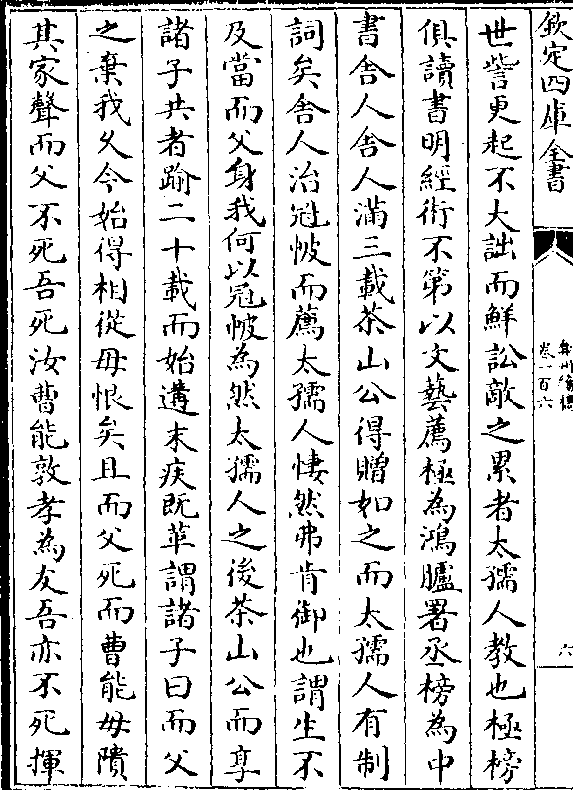 欽定四庫全書
弇州續稿
卷一百六
六
世訾更起不大詘而鮮訟敵之累者太孺人教也極榜
俱讀書明經術不第以文藝薦極為鴻臚署丞榜為中
書舍人舍人滿三載茶山公得贈如之而太孺人有制
詞矣舍人治冠帔而薦太孺人悽然弗肯御也謂生不
及當而父身我何以冠帔為然太孺人之後茶山公而享
諸子共者踰二十載而始遘末疾既革謂諸子曰而父
之棄我乆今始得相從毋恨矣且而父死而曹能毋隤
其家聲而父不死吾死汝曹能敦孝為友吾亦不死揮